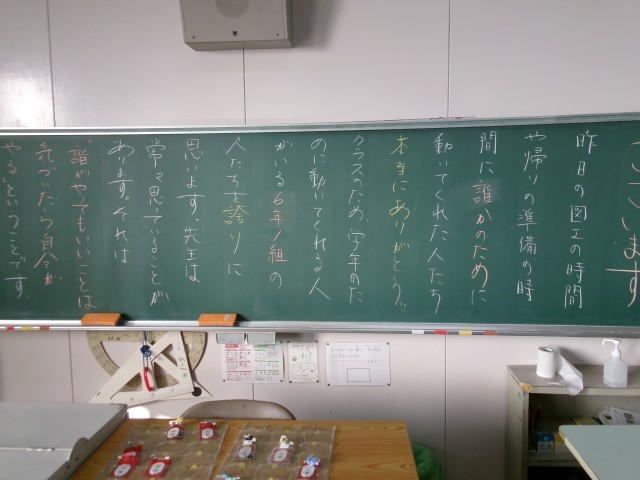 ございます
昨日の図工の時間
や帰りの準備の時
間に誰かのために
動いてくれた人たち
本当にありがとう。
クラスのため、学年のた
めに動いてくれる人
がいる6年1組の
人たちを誇りに
思います。先生は
常々思っていることが
あります。それは
"誰がやってもいいことは
気づいたら自分が
やるということ"です。